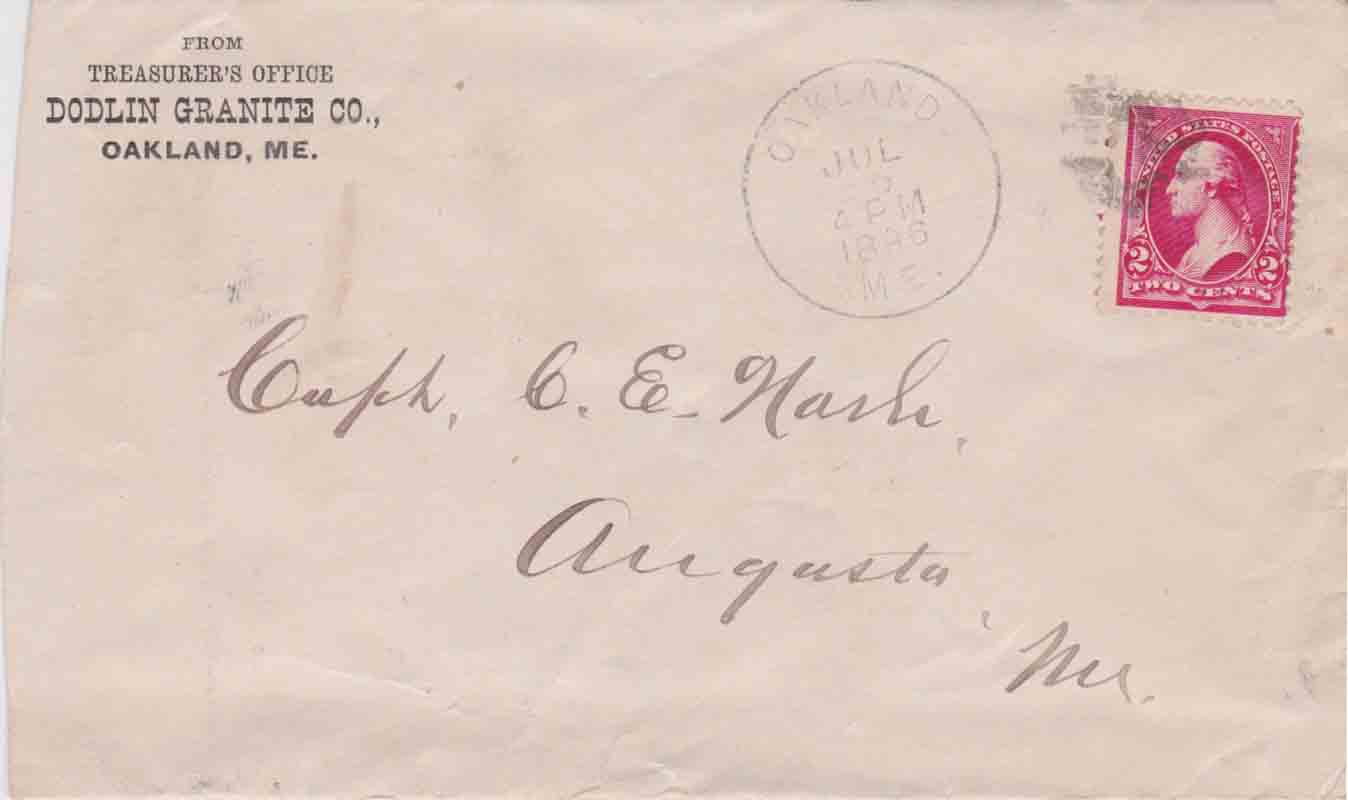 FROM
TREASURER'S OFFICE
DODLIN GRANITE CO.,
OAKLAND, ME.
OAKLAND.
JUL
4 PM
1896
ME.
UNITED STATES POSTAGE
2 2
TWO CENTS
Capt. C. E. Nash,
Augusta,
Me.